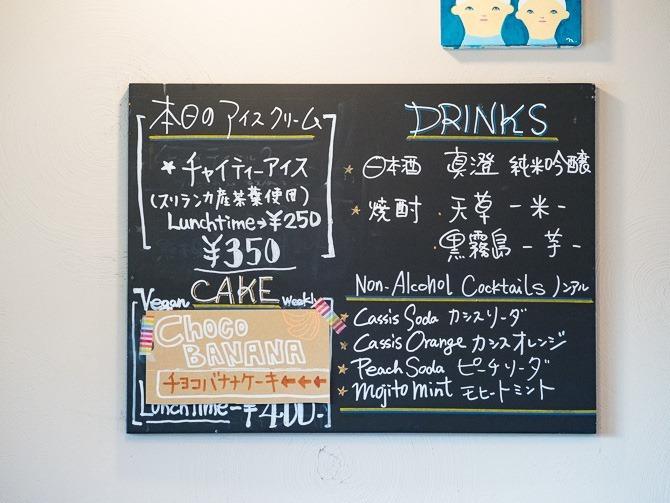 本日のアイスクリーム
★ チャイティーアイス
(スリランカ産茶葉使用)
Lunchtime→¥250
¥350
CAKE
Vegan
Weekly
CHOCO
BANANA
チョコバナナケーキ←←←
Lunchtime-¥400-
DRINKS
★日本酒 真澄 純米吟醸
★焼酎・天草 -米-
・黒霧島 -芋-
Non-Alcohol Cocktails ノンアル
★Cassis Soda カシスソーダ
★Cassis Orange カシスオレンジ
★Peach Soda ピーチソーダ
★Mojito Mint モヒートミント